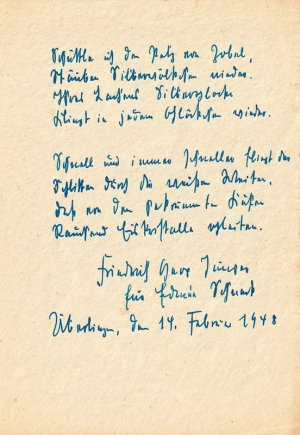 Schüttle ich den Pelz von Zobel,
Stäuben Silberflöckchen nieder.
Ihres Lachens Silberglocke
Klingt in jedem Glöckchen wieder.
Schnell und immer schneller fliegt der
Schlitten durch die weißen Weiten,
Daß von den gekrümmten Kufen
Rauschend Eiskristalle gleiten.
Friedrich Georg Jünger
für Edwin Schmidt
Überlingen, den 14. Februar 1948